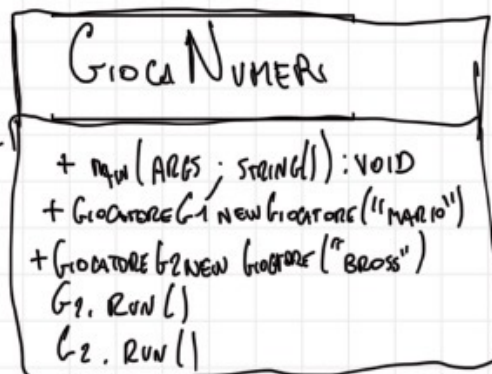 GIOCA NUMERI
+ MAIN(ARGS : STRING[]) : VOID
+ GIOCATORE G1 NEW GIOCATORE("MARIO")
+ GIOCATORE G2 NEW GIOCATORE("BROSS")
G1. RUN()
G2. RUN()